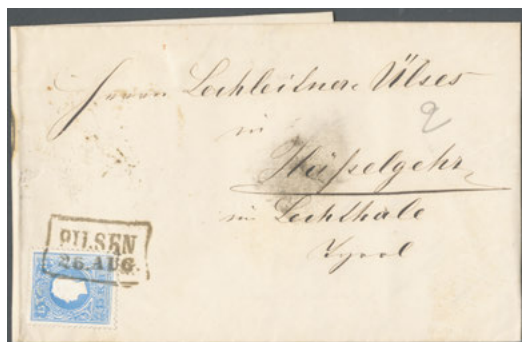 Herrn Lechleitner Ulses
in
2
Häselgehr
im Lechthale
Tyrol
PILSEN
26. AUG.